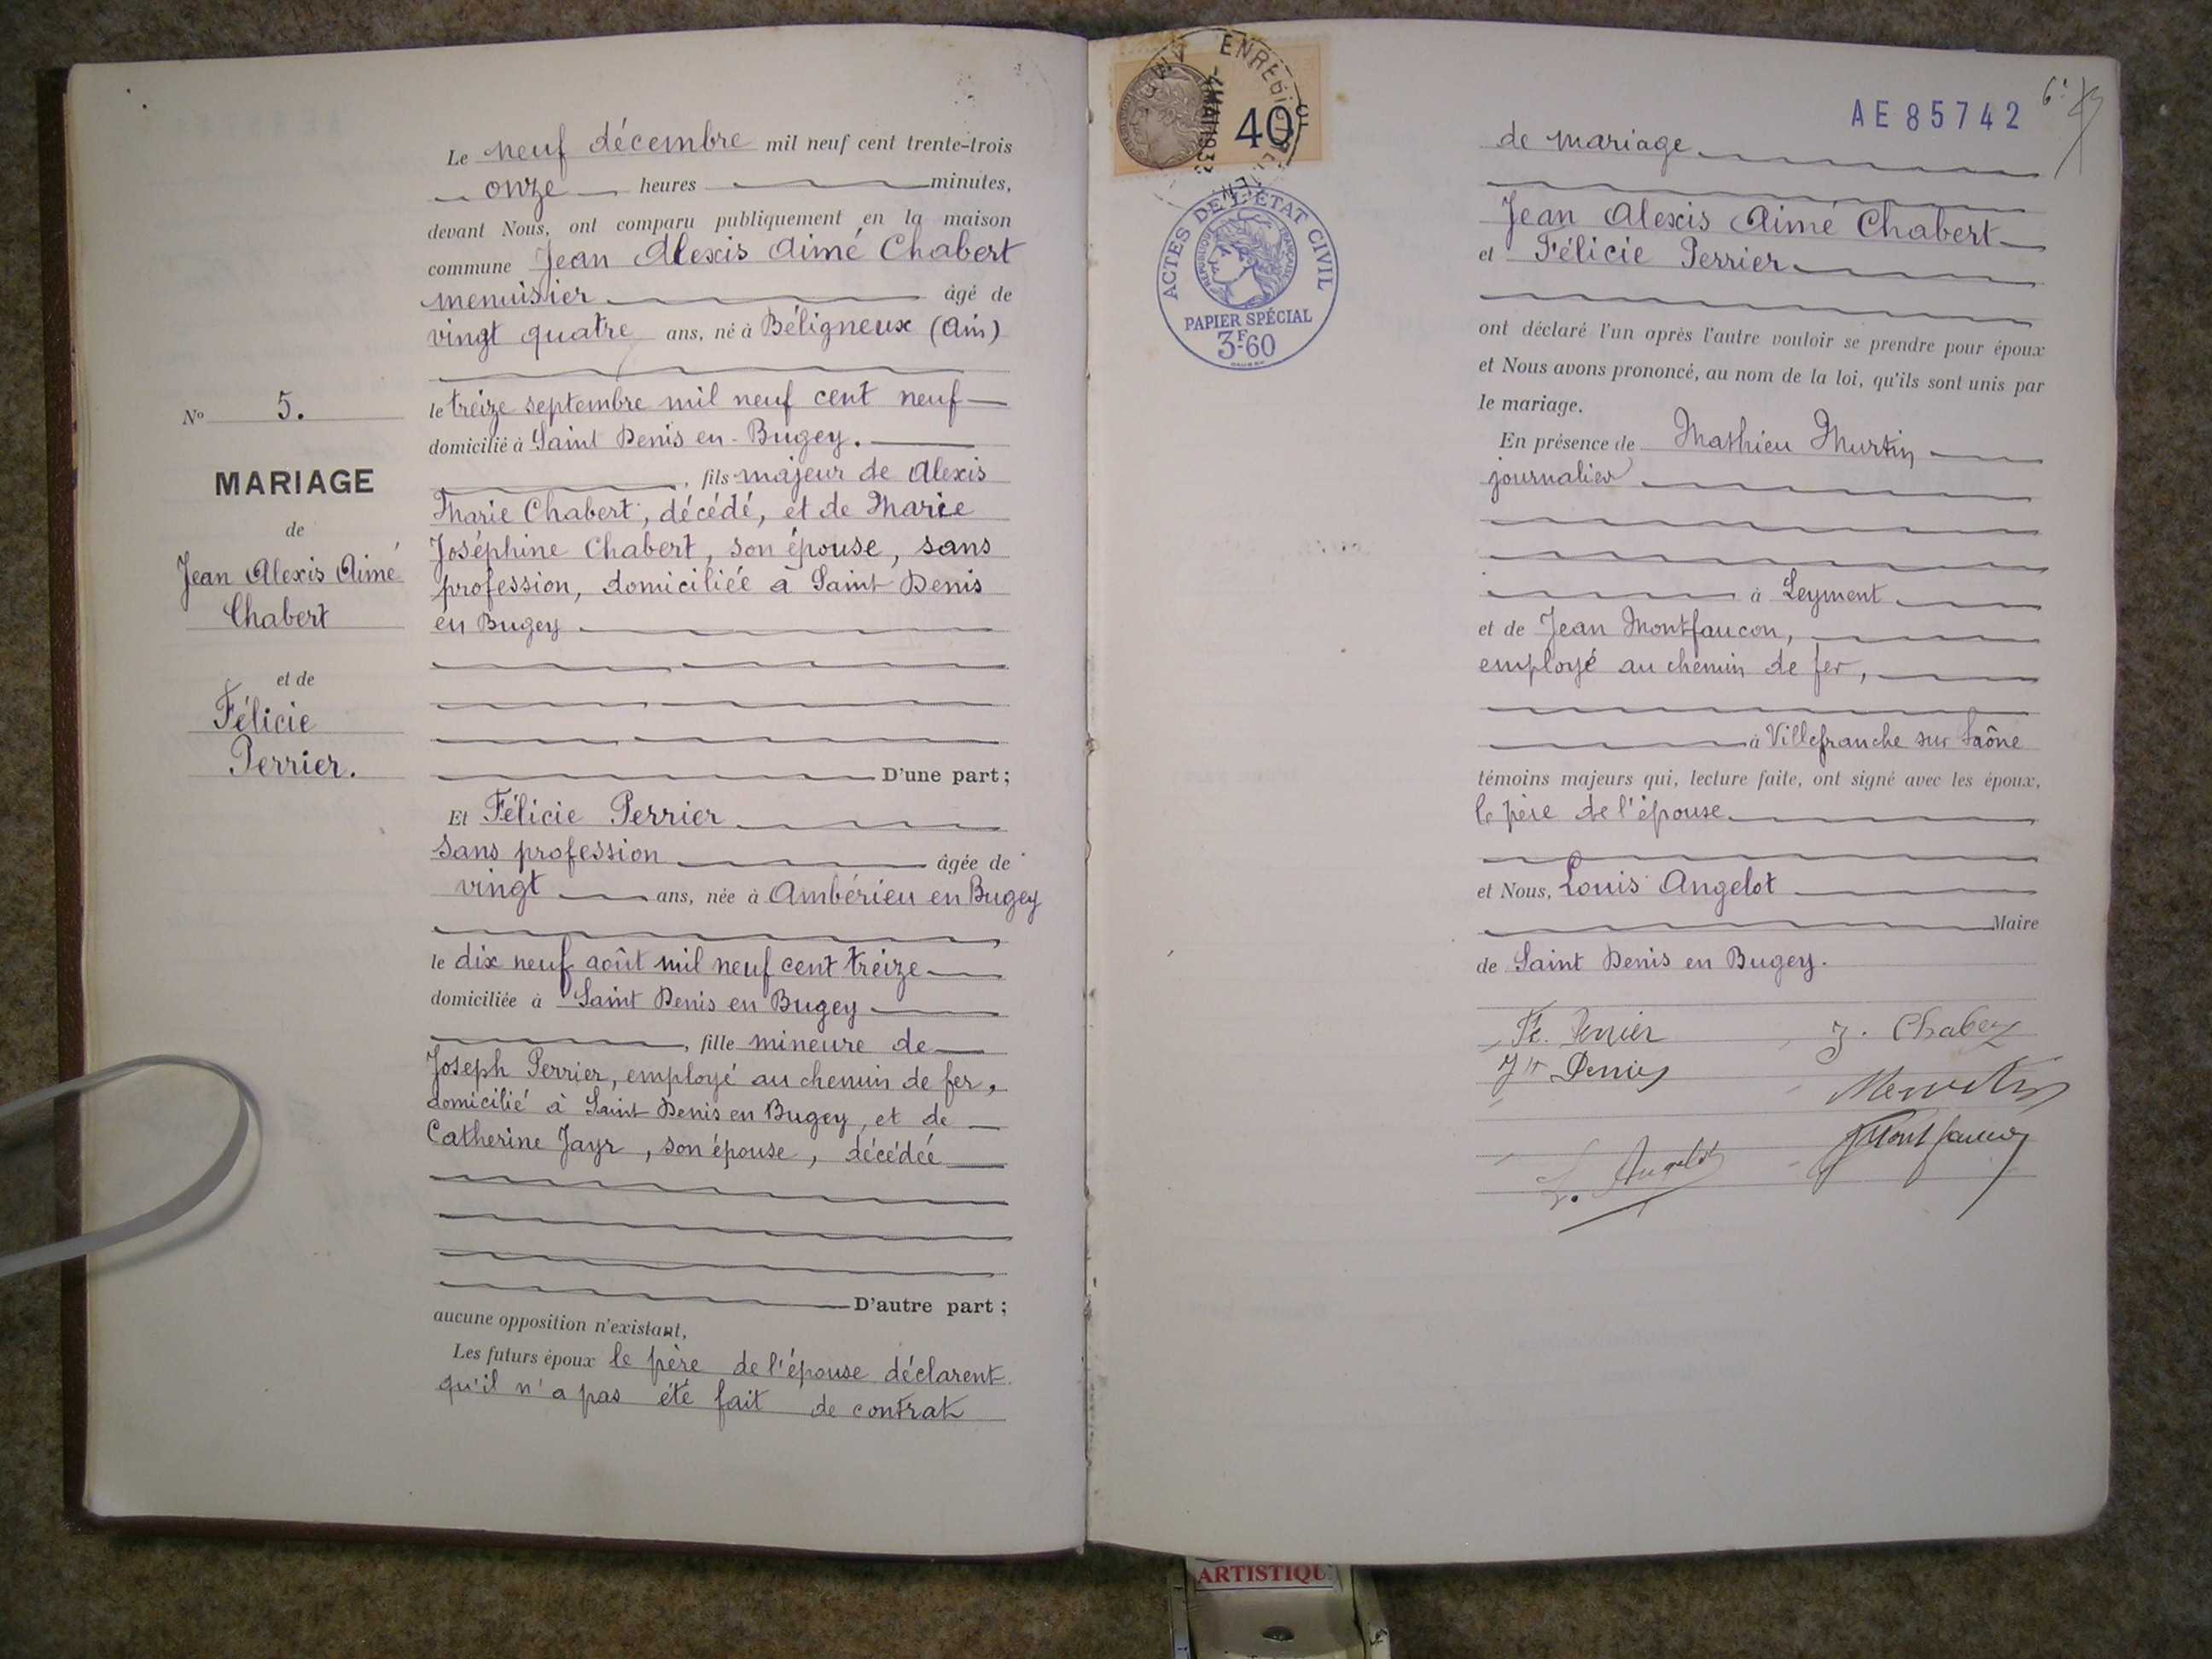 Le neuf décembre mil neuf cent trente-trois
onze heures minutes,
devant Nous, ont comparu publiquement en la maison
commune Jean Alexis Aimé Chabert
menuisier âgé de
vingt quatre ans, né à Béligneux (Ain)
le treize septembre mil neuf cent neuf
domicilié à Saint Denis en-Bugey.
, fils majeur de Alexis
Marie Chabert, décédé, et de Marie
Joséphine Chabert, son épouse, sans
profession, domiciliée à Saint Denis
en Bugey
D'une part;
Et Félicie Perrier
sans profession âgée de
vingt ans, née à Ambérieu en Bugey
le dix neuf août mil neuf cent treize
domiciliée à Saint Denis en Bugey
, fille mineure de
Joseph Perrier, employé au chemin de fer,
domicilié à Saint Denis en Bugey, et de
Catherine Jayr, son épouse, décédée
D'autre part;
aucune opposition n'existant,
Les futurs époux le père de l'épouse déclarent
qu'il n'a pas été fait de contrat
No 5.
MARIAGE
de
Jean Alexis Aimé
Chabert
et de
Félicie
Perrier.
40c
ACTES DE L'ÉTAT CIVIL
RÉPUBLIQUE FRANÇAISE
PAPIER SPÉCIAL
3F-60
AE 85742
de mariage
Jean Alexis Aimé Chabert
et Félicie Perrier
ont déclaré l'un après l'autre vouloir se prendre pour époux
et Nous avons prononcé, au nom de la loi, qu'ils sont unis par
le mariage.
En présence de Mathieu Murtin
journalier
à Leyment
et de Jean Montfaucon,
employé au chemin de fer,
à Villefranche sur Saône
témoins majeurs qui, lecture faite, ont signé avec les époux,
le père de l'épouse
et Nous, Louis Angelot
Maire
de Saint Denis en Bugey.
Fé. Perrier J. Chabert
Jh Perrier
Murtin
JMontfaucon
L. Angelot
ARTISTIQU